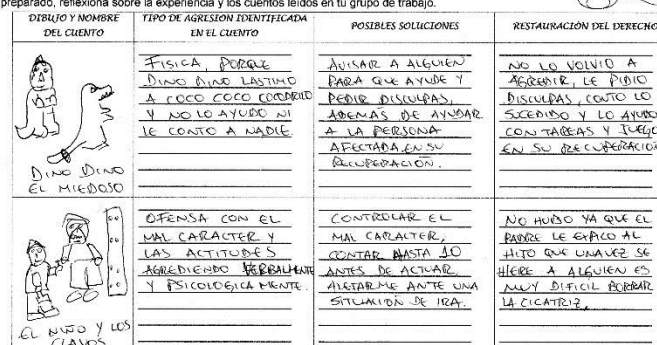 preparado, reflexiona sobre la experiencia y los cuentos leídos en tu grupo de trabajo.
DIBUJO Y NOMBRE
DEL CUENTO
TIPO DE AGRESIÓN IDENTIFICADA
EN EL CUENTO
POSIBLES SOLUCIONES
RESTAURACIÓN DEL DERECHO
DINO DINO
EL MIEDOSO
FISICA, PORQUE
DINO DINO LASTIMO
A COCO COCO COCODRILO
Y NO LO AYUDO NI
LE CONTO A NADIE
AVISAR A ALGUIEN
PARA QUE AYUDE Y
PEDIR DISCULPAS,
ADEMÁS DE AYUDAR
A LA PERSONA
AFECTADA EN SU
RECUPERACIÓN.
NO LO VOLVIO A
AGREDIR, LE PIDIO
DISCULPAS, CONTO LO
SUCEDIDO Y LO AYUDO
CON TAREAS Y JUEGO
EN SU RECUPERACIÓN
EL NIÑO Y LOS
CLAVOS
OFENSA CON EL
MAL CARACTER Y
LAS ACTITUDES
AGREDIENDO VERBALMENTE
Y PSICOLOGICA MENTE.
CONTROLAR EL
MAL CARACTER,
CONTAR HASTA 10
ANTES DE ACTUAR,
ALEJARME ANTE UNA
SITUACIÓN DE IRA.
NO HUBO YA QUE EL
PADRE LE EXPLICO AL
HIJO QUE UNA VEZ SE
HIERE A ALGUIEN ES
MUY DIFICIL BORRAR
LA CICATRIZ.